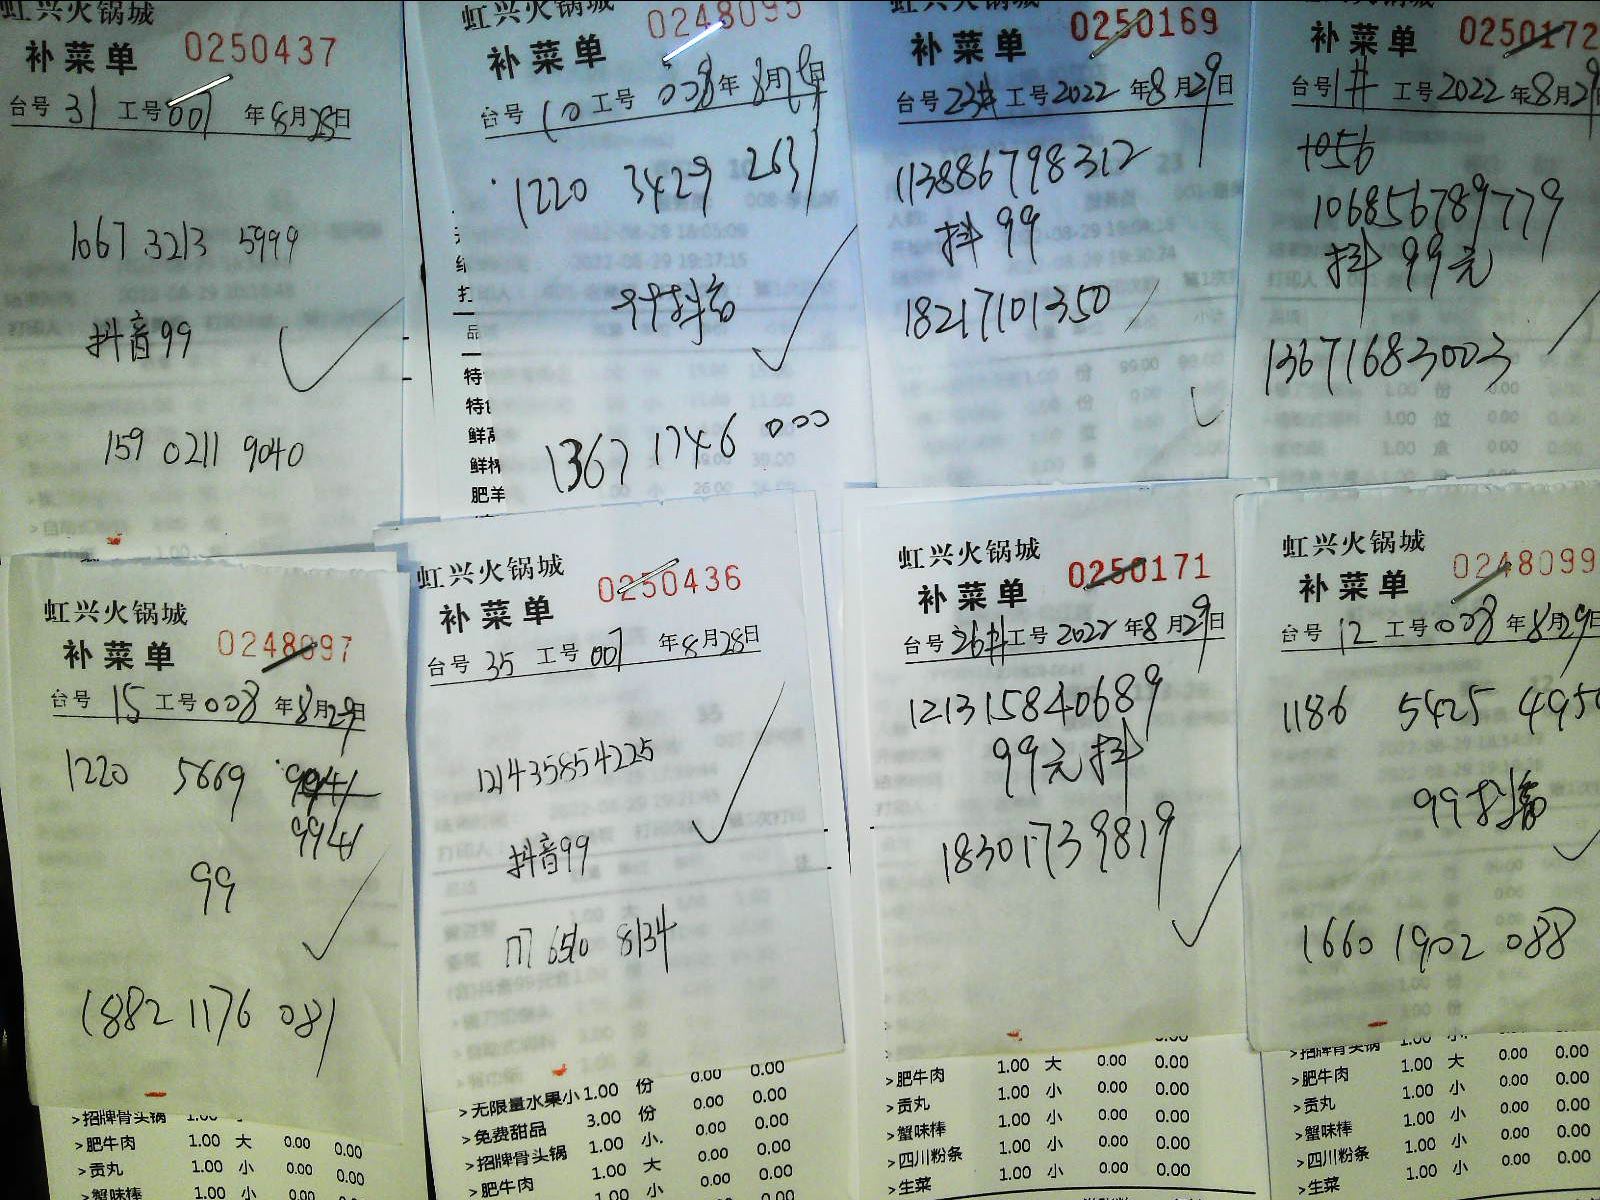 虹兴火锅城
补菜单 0250437
台号 31 工号 001 年 8月28日
1067 3213 5999
抖音99
159 0211 9040
虹兴火锅城
补菜单 0248095
台号 10 工号 008 年 8月29日
1220 3429 2631
99抖音
1367 1746 000
品
特
特
鲜
鲜
肥羊
虹兴火锅城
补菜单 0250169
台号 23# 工号 2022 年 8月29日
113886798312
抖 99
18217101350
虹兴火锅城
补菜单 0250172
台号 1# 工号 2022 年 8月29日
1056
106856789779
抖 99元
13671683003
虹兴火锅城
补菜单 0248097
台号 15 工号 008 年 8月29日
1220 5669 9941
9941
99
1882 1176 081
>招牌骨头锅 1.00 小
>肥牛肉 1.00 大 0.00 0.00
>贡丸 1.00 小 0.00 0.00
>蟹味棒 1.00 小 0.00 0.00
虹兴火锅城
补菜单 0250436
台号 35 工号 001 年 8月28日
121435854225
抖音99
177 6510 8134
>无限量水果小 1.00 份 0.00 0.00
>免费甜品 3.00 份 0.00 0.00
>招牌骨头锅 1.00 小. 0.00 0.00
>肥牛肉 1.00 大 0.00 0.00
1.00 小 0.00 0.00
虹兴火锅城
补菜单 0250171
台号 26# 工号 2022 年 8月29日
121315840689
99元 抖
18301739819
>肥牛肉 1.00 大 0.00 0.00
>贡丸 1.00 小 0.00 0.00
>蟹味棒 1.00 小 0.00 0.00
>四川粉条 1.00 小 0.00 0.00
>生菜 1.00 小 0.00 0.00
虹兴火锅城
补菜单 0248099
台号 12 工号 008 年 8月29日
1186 5425 4950
99抖音
1660 1902 088
>招牌骨头锅 1.00 小. 0.00 0.00
>肥牛肉 1.00 大 0.00 0.00
>贡丸 1.00 小 0.00 0.00
>蟹味棒 1.00 小 0.00 0.00
>四川粉条 1.00 小 0.00 0.00
>生菜 1.00 小 0.00 0.00